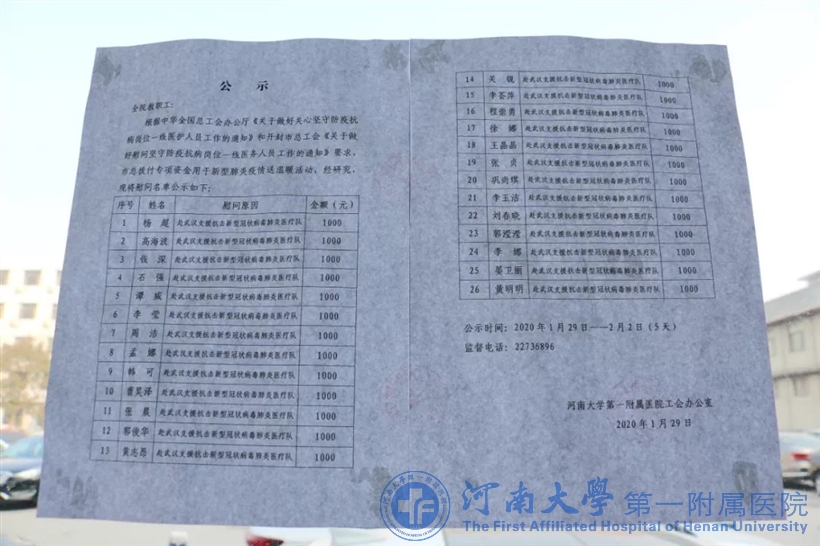 公 示
全院教职工:
根据中华全国总工会办公厅《关于做好关心坚守防疫抗
病岗位一线医护人员工作的通知》和开封市总工会《关于做
好慰问坚守防疫抗病岗位一线医务人员工作的通知》要求,
市总拨付专项资金用于新型肺炎疫情送温暖活动,经研究,
现将慰问名单公示如下:
序号 姓名 慰问原因 金额(元)
1 杨 超 赴武汉支援抗击新型冠状病毒肺炎医疗队 1000
2 高海波 赴武汉支援抗击新型冠状病毒肺炎医疗队 1000
3 张 深 赴武汉支援抗击新型冠状病毒肺炎医疗队 1000
4 石 强 赴武汉支援抗击新型冠状病毒肺炎医疗队 1000
5 谭 威 赴武汉支援抗击新型冠状病毒肺炎医疗队 1000
6 李 莹 赴武汉支援抗击新型冠状病毒肺炎医疗队 1000
7 周 洁 赴武汉支援抗击新型冠状病毒肺炎医疗队 1000
8 孟 娜 赴武汉支援抗击新型冠状病毒肺炎医疗队 1000
9 韩 可 赴武汉支援抗击新型冠状病毒肺炎医疗队 1000
10 曹昊泽 赴武汉支援抗击新型冠状病毒肺炎医疗队 1000
11 张 晨 赴武汉支援抗击新型冠状病毒肺炎医疗队 1000
12 郗俊华 赴武汉支援抗击新型冠状病毒肺炎医疗队 1000
13 黄志愿 赴武汉支援抗击新型冠状病毒肺炎医疗队 1000
14 关 锐 赴武汉支援抗击新型冠状病毒肺炎医疗队 1000
15 李荟萍 赴武汉支援抗击新型冠状病毒肺炎医疗队 1000
16 程崇勇 赴武汉支援抗击新型冠状病毒肺炎医疗队 1000
17 徐 娜 赴武汉支援抗击新型冠状病毒肺炎医疗队 1000
18 王晶晶 赴武汉支援抗击新型冠状病毒肺炎医疗队 1000
19 张 贞 赴武汉支援抗击新型冠状病毒肺炎医疗队 1000
20 巩尚琪 赴武汉支援抗击新型冠状病毒肺炎医疗队 1000
21 李玉洁 赴武汉支援抗击新型冠状病毒肺炎医疗队 1000
22 刘春晓 赴武汉支援抗击新型冠状病毒肺炎医疗队 1000
23 郭滢滢 赴武汉支援抗击新型冠状病毒肺炎医疗队 1000
24 李 娜 赴武汉支援抗击新型冠状病毒肺炎医疗队 1000
25 晏卫丽 赴武汉支援抗击新型冠状病毒肺炎医疗队 1000
26 黄明明 赴武汉支援抗击新型冠状病毒肺炎医疗队 1000
公示时间:2020年1月29日——2月2日(5天)
监督电话:22736896
河南大学第一附属医院工会办公室
2020年1月29日
河南大学 第一附属医院
The First Affiliated Hospital of Henan University